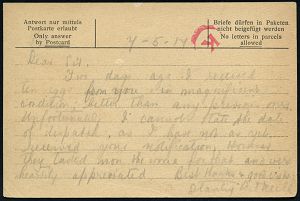 Antwort nur mittels
Postkarte erlaubt
Only answer
by Postcard
Briefe dürfen in Paketen
nicht beigefügt werden
No letters in parcels
allowed
Dear Sir.
Five days ago I received
ten eggs from you in magnificent
condition, better than any previous ones.
Unfortunately I cannot state the date
of dispatch, as I have not as yet
received your notification, However
they tasted and were
heartily appreciated Best thanks & good wishes